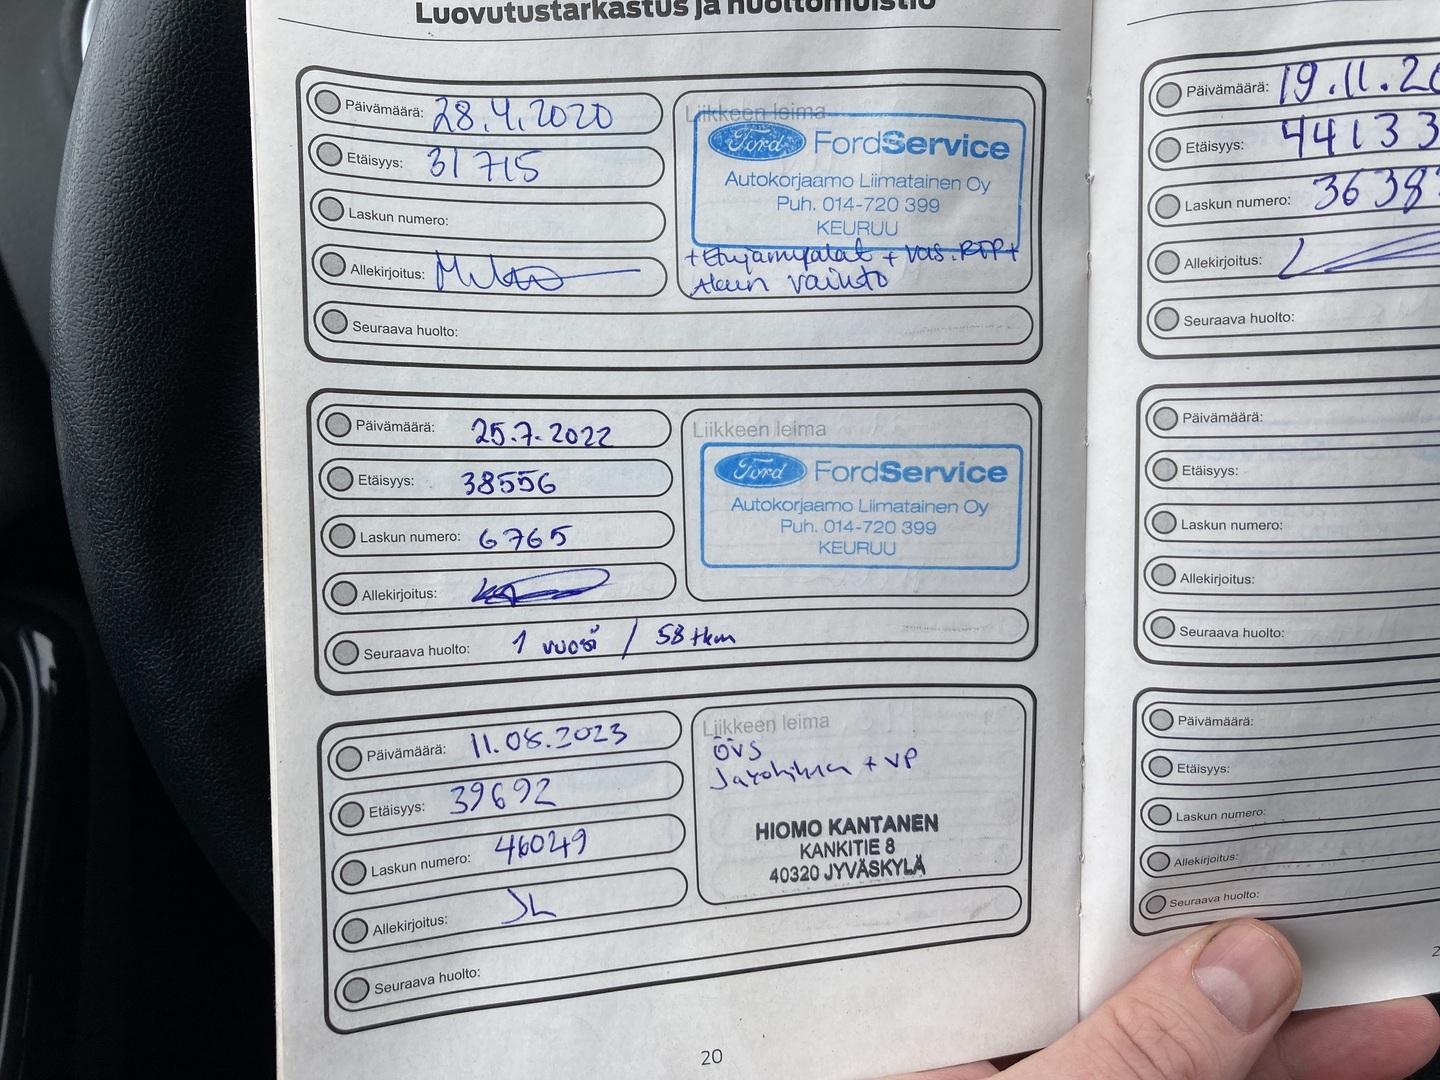 Luovutustarkastus ja huoltomuistio
Päivämäärä: 28.4.2020
Etäisyys: 31 715
Laskun numero:
Allekirjoitus:
Seuraava huolto:
Liikkeen leima
Ford FordService
Autokorjaamo Liimatainen Oy
Puh. 014-720 399
KEURUU
+ Etujarrupalat + vas.
vaihto
Päivämäärä: 25.7.2022
Etäisyys: 38556
Laskun numero: 6765
Allekirjoitus:
Seuraava huolto: 1 vuosi / 58 tkm
Liikkeen leima
Ford FordService
Autokorjaamo Liimatainen Oy
Puh. 014-720 399
KEURUU
Päivämäärä: 11.08.2023
Etäisyys: 39692
Laskun numero: 46049
Allekirjoitus: JL
Seuraava huolto:
Liikkeen leima
ÖVS
+ VP
HIOMO KANTANEN
KANKITIE 8
40320 JYVÄSKYLÄ
20
Päivämäärä: 19.11.20
Etäisyys: 44133
Laskun numero: 3638
Allekirjoitus:
Seuraava huolto:
Päivämäärä:
Etäisyys:
Laskun numero:
Allekirjoitus:
Seuraava huolto:
Päivämäärä:
Etäisyys:
Laskun numero:
Allekirjoitus:
Seuraava huolto:
2